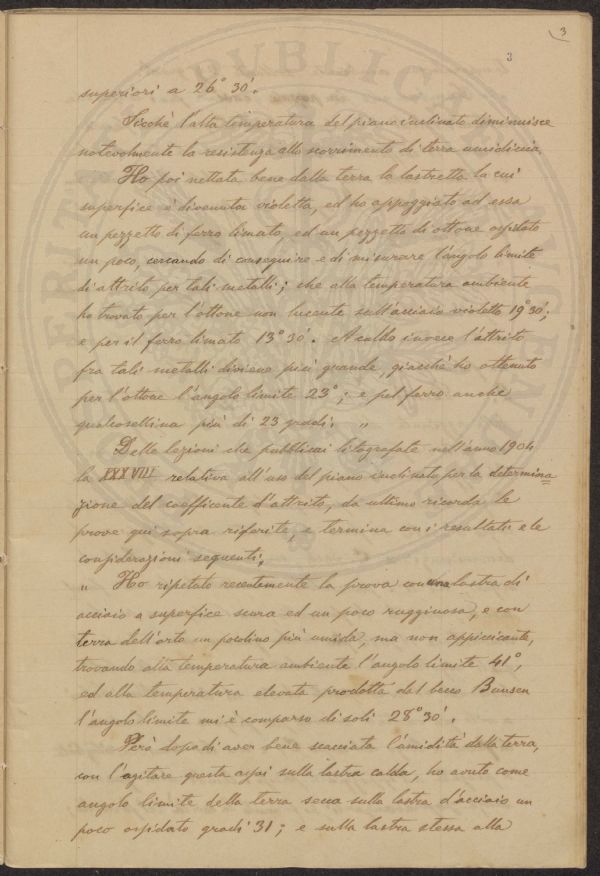 3
3
superiori a 26° 30'.
Sicchè l'alta temperatura del piano inclinato diminuisce
notevolmente la resistenza allo scorrimento di terra umidiccia.
Ho poi nettata bene dalla terra la lastretta la cui
superfice è divenuta violetta, ed ho appoggiato ad essa
un pezzetto di ferro limato, ed un pezzetto di ottone ossidato
un poco, cercando di conseguire e di misurare l'angolo limite
di attrito per tali metalli; che alla temperatura ambiente
ho trovato per l'ottone non lucente sull'acciaio violetto 19° 30';
e per il ferro limato 13° 30'. A caldo invece l'attrito
fra tali metalli diviene più grande, giacchè ho ottenuto
per l'ottone l'angolo limite 23°; e pel ferro anche
qualcosellina più di 23 gradi. "
Delle lezioni che pubblicai litografate nell'anno 1904
la XXXVIII relativa all'uso del piano inclinato per la determina
zione del coefficente d'attrito, da ultimo ricorda le
prove qui sopra riferite, e termina con i resultati e le
considerazioni seguenti:
" Ho ripetuto recentemente la prova con una lastra di
acciaio a superfice scura ed un poco rugginosa, e con
terra dell'orto un pocolino più umida, ma non appiccicante,
trovando alla temperatura ambiente l'angolo limite 41°,
ed alla temperatura elevata prodotta dal becco Bunsen
l'angolo limite mi è comparso di soli 28° 30'.
Però dopo di aver bene scacciata l'umidità della terra,
con l'agitare questa assai sulla lastra calda, ho avuto come
angolo limite della terra secca sulla lastra d'acciaio un
poco ossidato gradi 31; e sulla lastra stessa alla